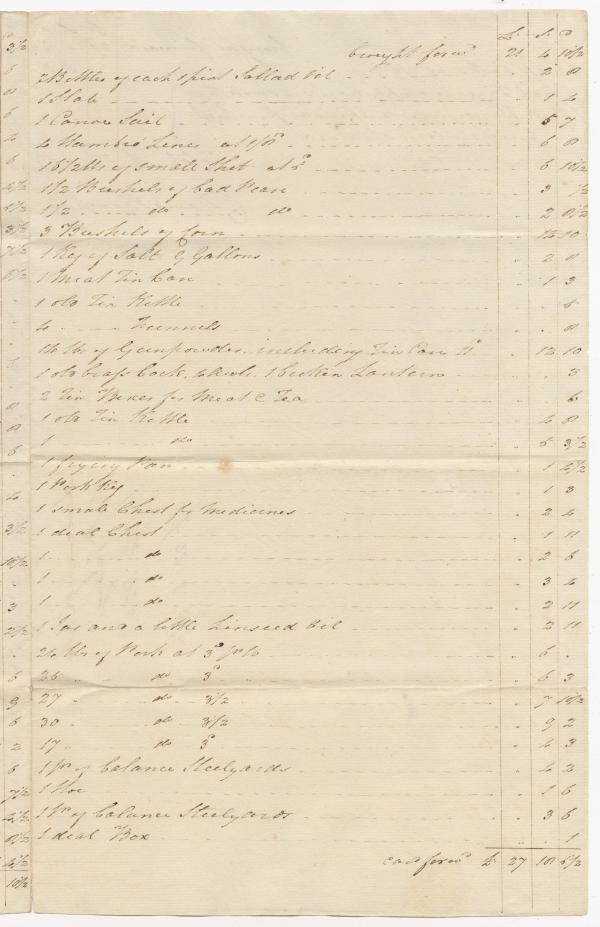 £ s D
brought forwd 21 4 10½
2 Bottles of each 1 pint Sallad Oil 2 8
1 Slate 1 4
1 Canoe Sail 5 7
4 Hambro Lines at 1/8d 6 8
16½ lbs of small Shot at 5d 6 10½
1½ Bushels of bad Pease 3 ½
1½ do do 2 8½
3 Bushels of Corn 12 10
1 Keg of Salt 9 Gallons 2 8
1 Meat Tin Can 1 3
1 old Tin Kettle
4 Funnels 8
14 lbs of Gunpowder including Tin Can 11d 12 10
1 old brass Cock 1 broken Lantern 3
2 Tin Boxes for Meat & Tea 6
1 old Tin Kettle 4 8
1 do 5 3½
1 frying Pan 1 4½
1 Pork Keg 1 3
1 small Chest for Medicines 2 4
1 deal Chest 1 11
1 do 2 8
1 do 3 4
1 do 2 11
1 Jar and a little Linseed Oil 2 11
24 lbs of Pork at 3d pr lb 6 .
25 do 3d 6 3
27 do 3½ 7 10½
30 do 3½ 9 2
17 do 3d 4 3
1 Pr of balance Steelyards 4 2
1 Hoe 1 6
1 Pr of balance Steelyards 3 6
1 deal Box 1
card forwd £ 27 18 5½